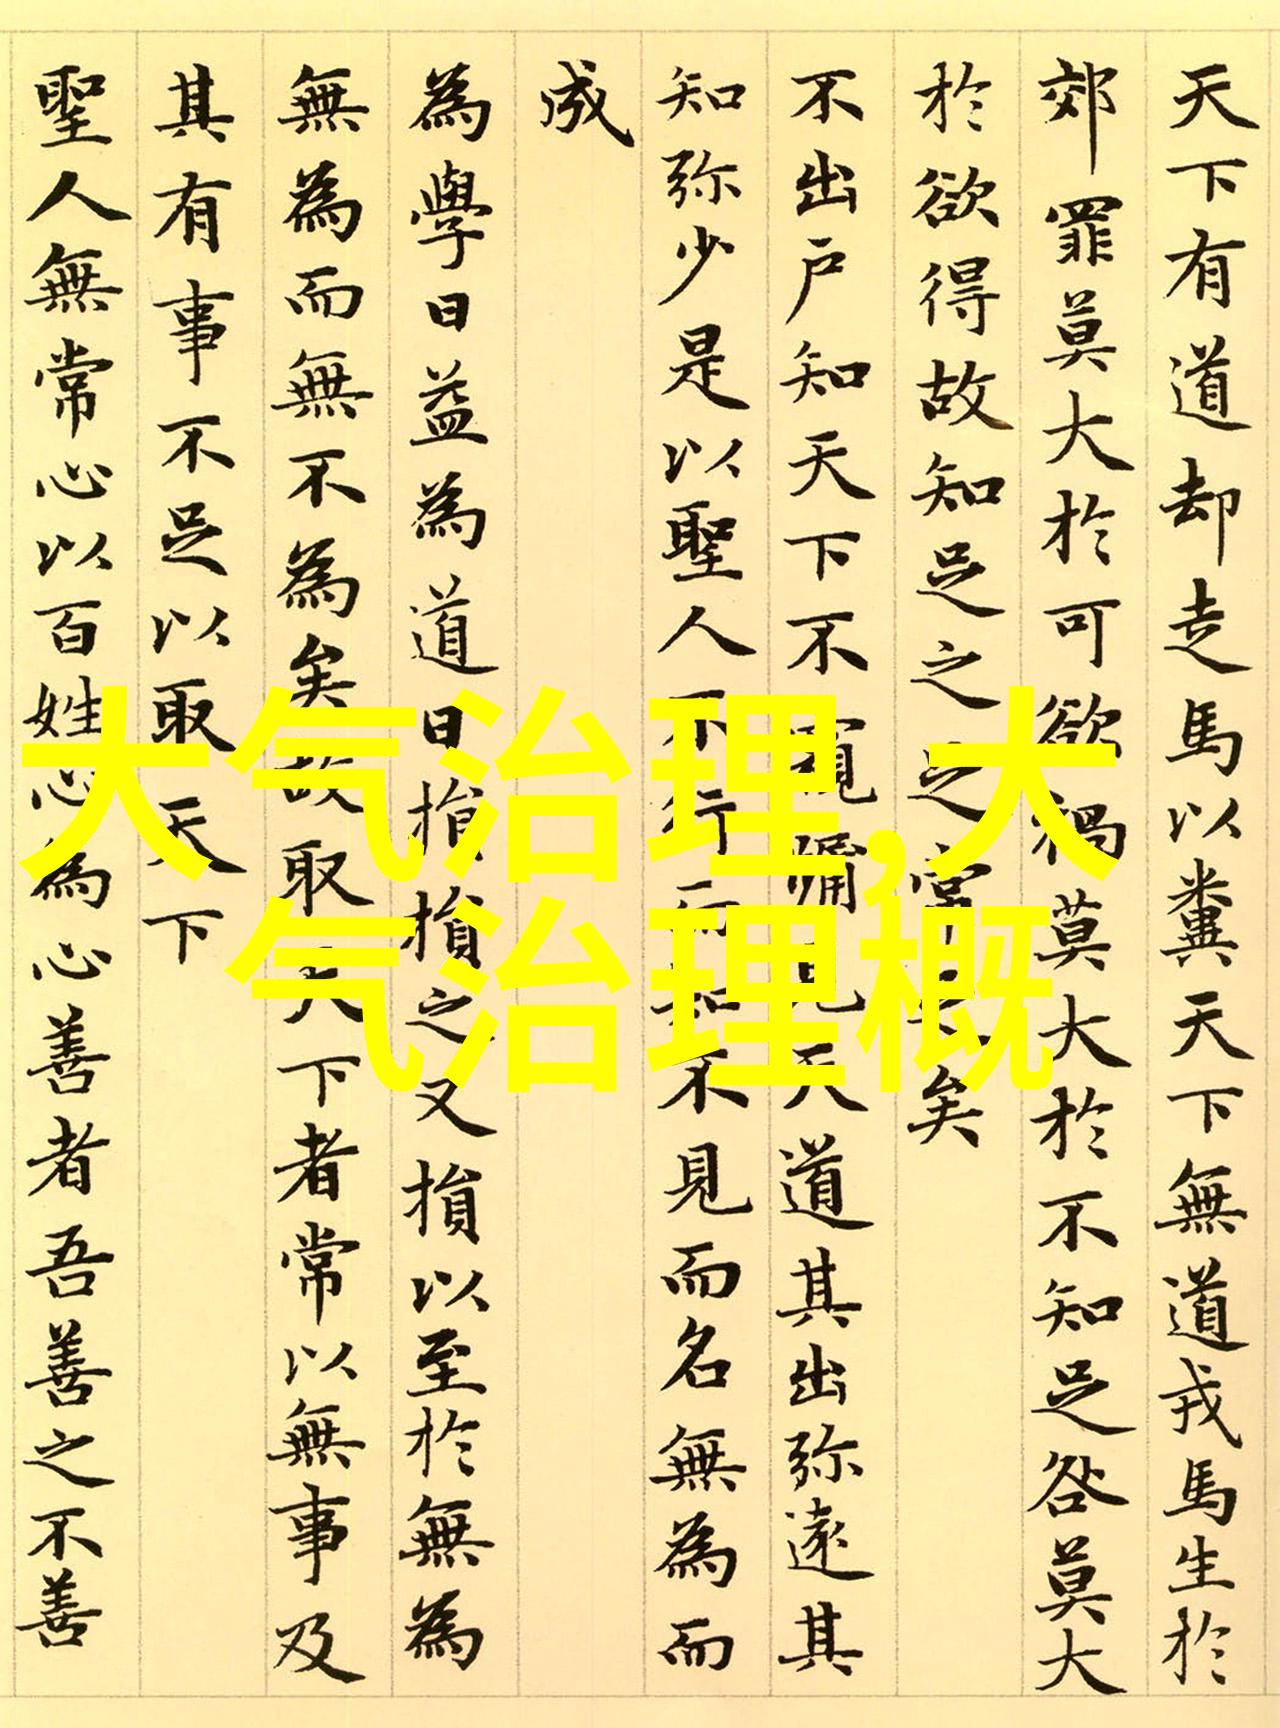 天下有道却走馬以糞天下無道戎馬生於
郊罪莫大於可欲禍莫大於不知足咎莫大
於欲得故知足之足常足矣
不出戶知天下不窺牖見天道其出弥遠其
知弥少是以聖人不行而知不見而名無為而
成
為學日益為道日損損之又損以至於無為
無為而無不為矣故取天下者常以無事及
其有事不足以取天下
聖人無常心以百姓心為心善者吾善之不善
大气治理,大
气治理概